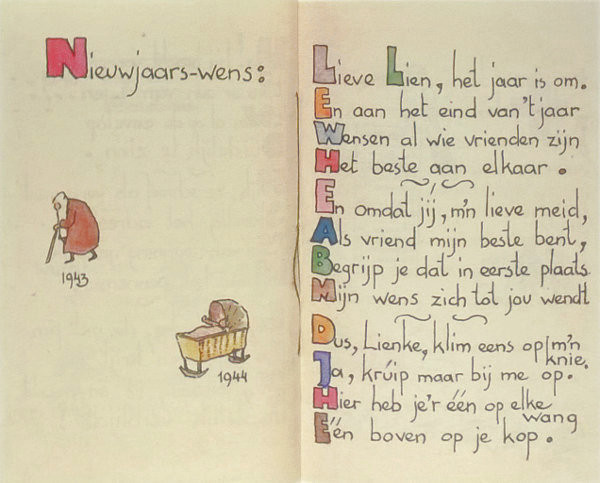 Nieuwjaars-wens:
1943
1944
Lieve Lien, het jaar is om.
En aan het eind van't jaar
Wensen al wie vrienden zijn
Het beste aan elkaar.
En omdat jij, m'n lieve meid,
Als vriend mijn beste bent,
Begrijp je dat in eerste plaats
Mijn wens zich tot jou wendt
Dus, Lienke, klim eens op m'n knie.
Ja, kruip maar bij me op.
Hier heb je'r één op elke wang
Eén boven op je kop.